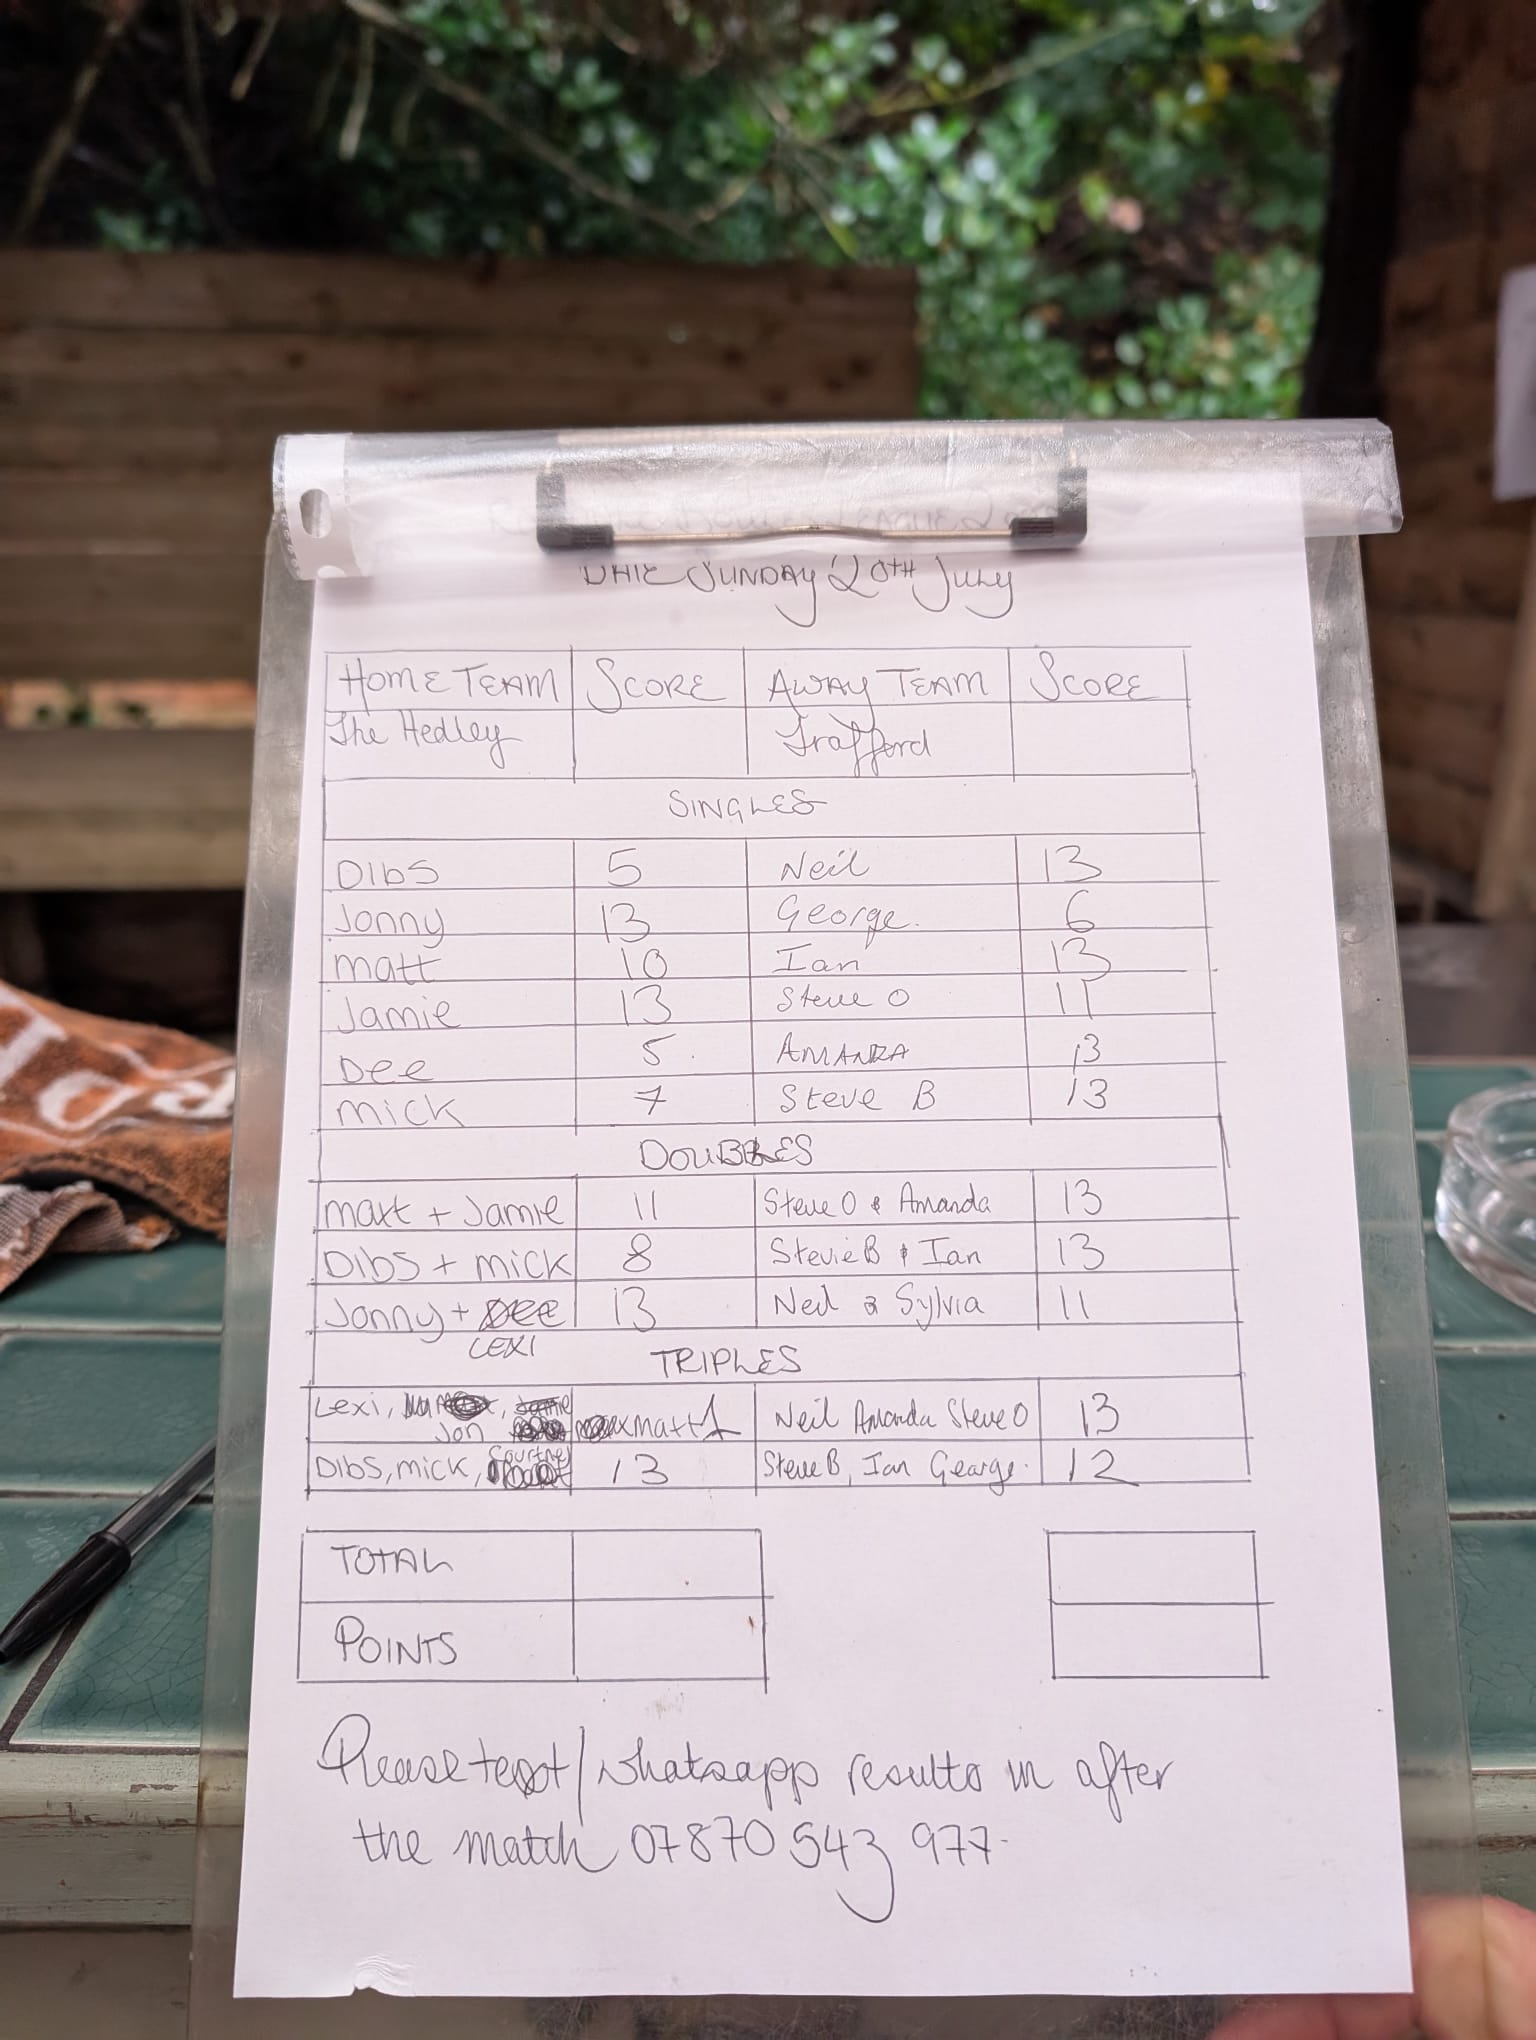 DATE SUNDAY 20TH July
HOME TEAM SCORE AWAY TEAM SCORE
The Hedley Trafford
SINGLES
DIbS 5 Neil 13
Jonny 13 George. 6
matt 10 Ian 13
Jamie 13 Steve O 11
Dee 5. AMANDA 13
mick 7 Steve B 13
DOUBLES
matt + Jamie 11 Steve O & Amanda 13
DIbS + mick 8 Stevie B & Ian 13
Jonny + DEE 13 Neil & Sylvia 11
LEXI
TRIPLES
Lexi, Jamie
Jon matt 1 Neil Amanda Steve O 13
Courtney
DIbS, mick, 13 Steve B, Ian George. 12
TOTAL
POINTS
Please text/whatsapp results in after
the match 07870 543 977.